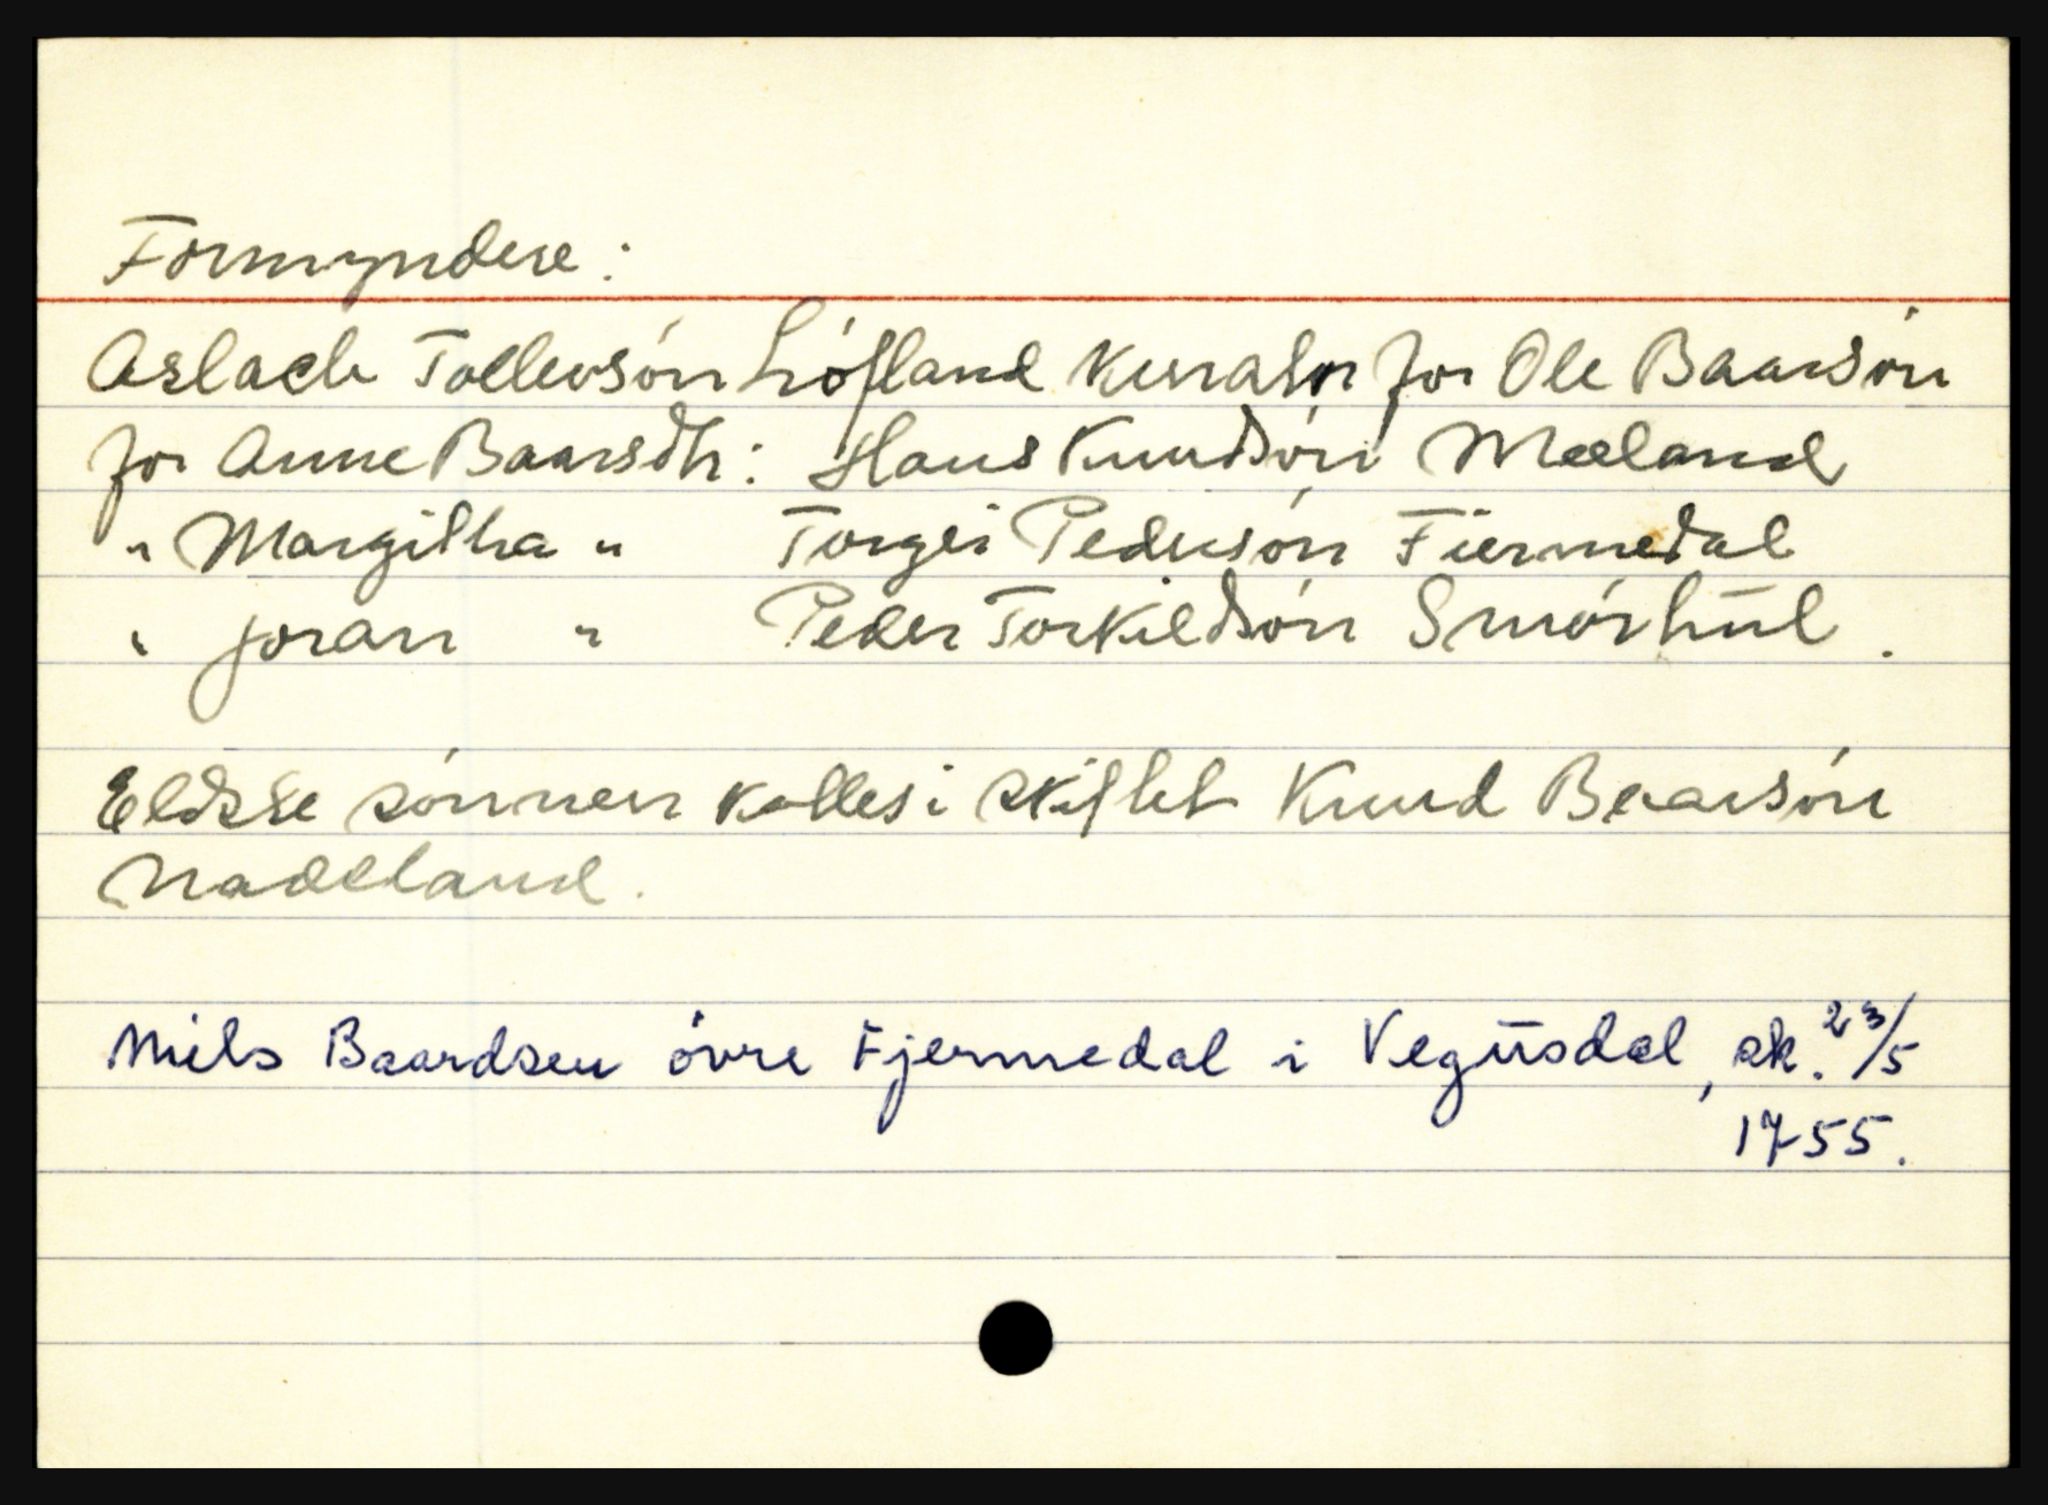 Formyndere:
Aslach Tollevsön Löfland Kurator for Ole Baarsön
for Anne Baarsdtr: Hans Knudsön Mæland
" Margitha " Torger Pedersön Fiermedal
" Joran " Peder Torkildsön Smörhül.
Eldste sönnen kalles i skiftet Knud Baarsön
Nadeland.
Niels Baardsen övre Fjermedal i Vegüsdal, sk. 23/5
1755.